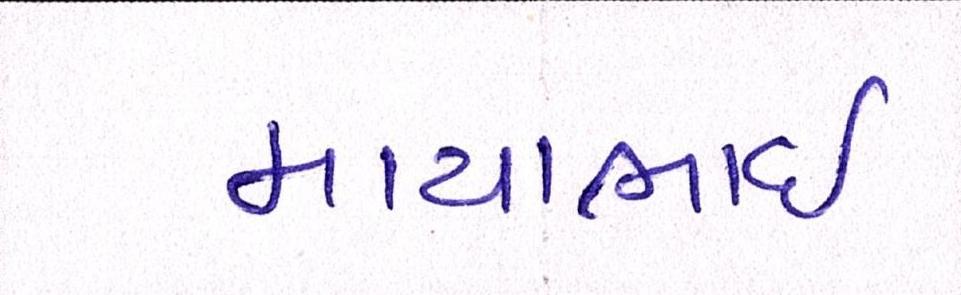 માયાભાઈ